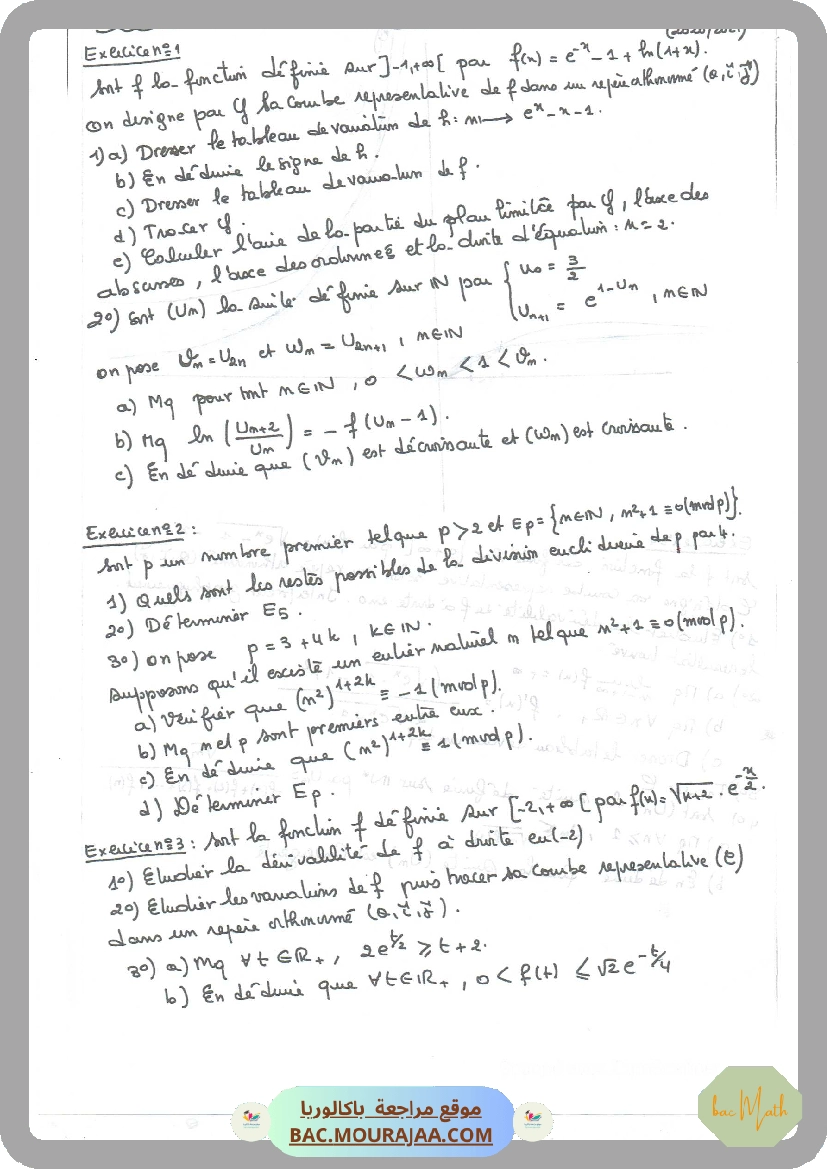 (2020/2021)
Exercice n°1
Soit f la fonction définie sur ]-1,+∞[ par f(x) = e^{-x} - 1 + ln(1+x).
on désigne par 𝒞 sa courbe représentative de f dans un repère orthonormé (o, i⃗, j⃗)
1) a) Dresser le tableau de variation de h: x ⟼ e^x - x - 1.
b) En déduire le signe de h.
c) Dresser le tableau de variation de f.
d) Tracer 𝒞.
e) Calculer l'aire de la partie du plan limitée par 𝒞, l'axe des
abscisses, l'axe des ordonnées et la droite d'équation : x = 2.
2°) Soit (Un) la suite définie sur IN par { U0 = 3/2
U_{n+1} = e^{1-Un} , n∈IN
on pose Vn = U2n et Wn = U2n+1 , n∈IN
a) Mq pour tout n∈IN , 0 < Wn < 1 < Vn.
b) Mq ln(U_{n+2}/Un) = - f(Un - 1).
c) En déduire que (Vn) est décroissante et (Wn) est croissante.
Exercice n°2 :
Soit p un nombre premier tel que p > 2 et Ep = {n∈IN , n²+1 ≡ 0(mod p)}.
1) Quels sont les restes possibles de la division euclidienne de p par 4.
2°) Déterminer E5.
3°) on pose p = 3 + 4k , k∈IN.
Supposons qu'il existe un entier naturel n tel que n²+1 ≡ 0(mod p).
a) Vérifier que (n²)^{1+2k} ≡ -1(mod p).
b) Mq n et p sont premiers entre eux.
c) En déduire que (n²)^{1+2k} ≡ 1(mod p).
d) Déterminer Ep.
Exercice n°3 : Soit la fonction f définie sur [-2,+∞[ par f(x)= √(x+2) . e^{-x/2}.
1°) Etudier la dérivabilité de f à droite en(-2)
2°) Etudier les variations de f puis tracer sa courbe représentative (ℰ)
dans un repère orthonormé (o, i⃗, j⃗).
3°) a) Mq ∀t∈IR+ , 2e^{t/2} ⩾ t+2.
b) En déduire que ∀t∈IR+ , 0 < f(t) ⩽ √2 e^{-t/4}
موقع مراجعة باكالوريا
BAC.MOURAJAA.COM
bac Math